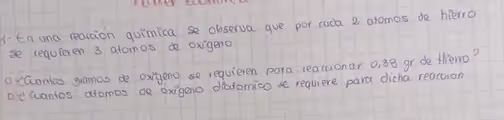 1- En una reacción química se observa que por cada 2 atomos de hierro
se requieren 3 atomos de oxígeno
a ¿Cuantos gramos de oxigeno se requieren para reaccionar 0,38 gr de hierro?
b ¿Cuantos atomos de oxígeno diatomico se requiere para dicha reaccion